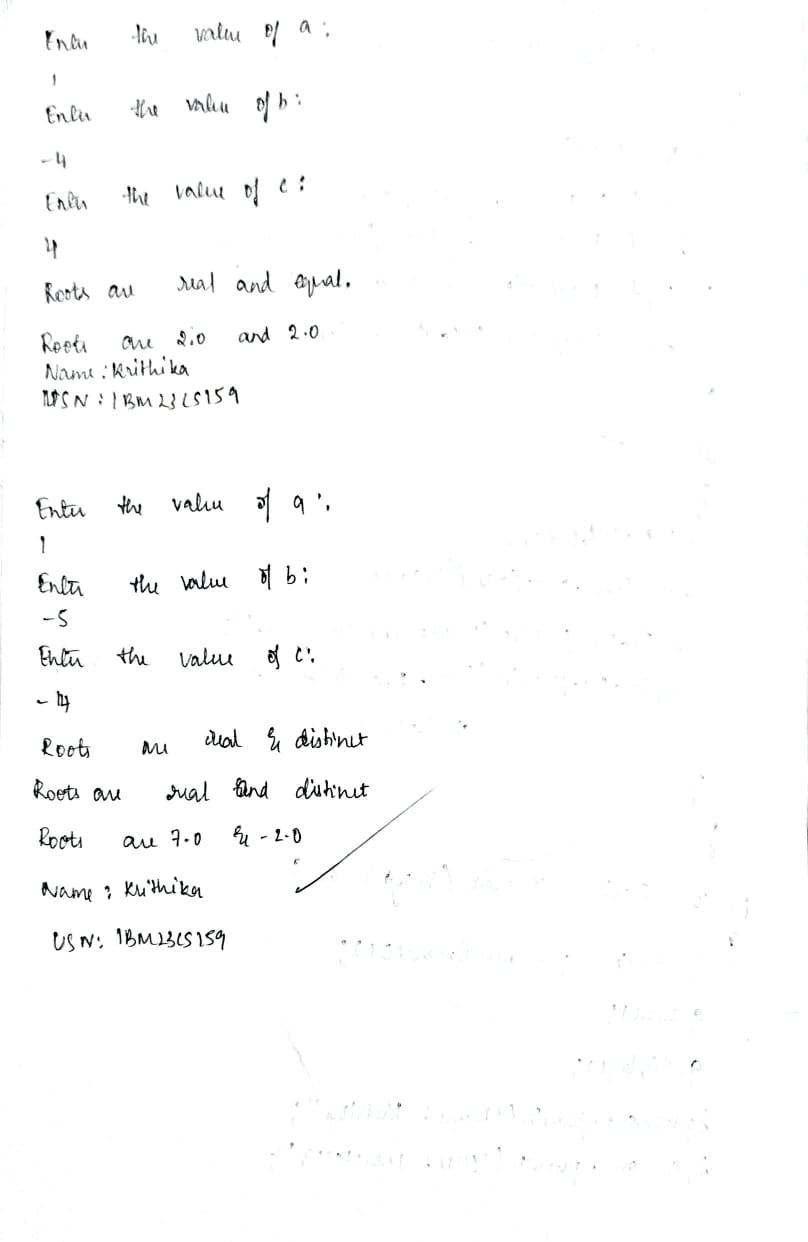 Enter the value of a:
1
Enter the value of b:
-4
Enter the value of c:
4
Roots are real and equal.
Roots are 2.0 and 2.0
Name: Krithika
USN: 1BM23CS159
Enter the value of a:
1
Enter the value of b:
-5
Enter the value of c:
-14
Roots are real & distinct
Roots are real and distinct
Roots are 7.0 & -2.0
Name: Krithika
USN: 1BM23CS159